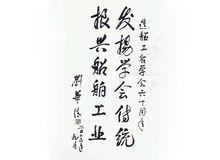 造船工程学会六十周年
发扬学会传统
振兴船舶工业
刘华清
二〇〇三年